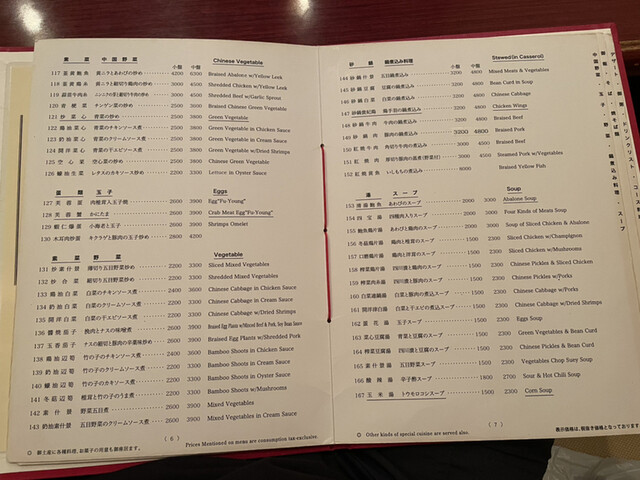 葉菜 中国野菜 小盤 中盤 Chinese Vegetable
117 黄ニラとあわびの炒め 4200 6300 Braised Abalone w/Yellow Leek
118 黄ニラと細切り鶏肉の炒め 3000 4500 Shredded Chicken w/Yellow Leek
119 3000 4500 Shredded Beef w/Garlic Sprouts
120 青梗菜 チンゲン菜の炒め 2400 3600 Braised Chinese Green Vegetable
121 炒菜心 青菜の炒め 2400 3600 Green Vegetable
122 鶏油菜心 青菜のチキンソース煮 2400 3600 Green Vegetable in Chicken Sauce
123 奶油菜心 青菜のクリームソース煮 2400 3600 Green Vegetable in Cream Sauce
124 開洋菜心 青菜の干エビソース煮 2400 3600 Green Vegetable w/Dried Shrimps
125 空心菜 空心菜の炒め 2400 3600 Chinese Green Vegetable
126 蠔油生菜 レタスのカキソース炒め 2200 3300 Lettuce in Oyster Sauce
蛋類 玉子 Eggs
127 芙蓉蛋 肉椎茸入玉子焼 2600 3900 Egg"Fu-Young"
128 芙蓉蟹 かにたま 2600 3900 Crab Meat Egg"Fu-Young"
129 蝦仁爆蛋 小海老と玉子 2600 3900 Shrimps Omelet
130 木耳肉炒蛋 キクラゲと豚肉の玉子炒め 2800 4200
素菜 野菜 Vegetable
131 炒素什景 薄切り五目野菜炒め 2200 3300 Sliced Mixed Vegetables
132 炒合菜 細切り五目野菜炒め 2200 3300 Shredded Mixed Vegetables
133 鶏油白菜 白菜のチキンソース煮 2400 3600 Chinese Cabbage in Chicken Sauce
134 奶油白菜 白菜のクリームソース煮 2200 3300 Chinese Cabbage in Cream Sauce
135 開洋白菜 白菜の干エビソース煮 2200 3300 Chinese Cabbage w/Dried Shrimps
136 醬燒茄子 挽肉とナスの味噌煮 2600 3900
137 玉香茄子 ナスの細切と豚肉の辛薬味炒め 2600 3900 Braised Egg Plants w/Shredded Pork
138 鶏油辺筍 竹の子のチキンソース煮 2400 3600 Bamboo Shoots in Chicken Sauce
139 奶油辺筍 竹の子のクリームソース煮 2200 3300 Bamboo Shoots in Cream Sauce
140 蠔油辺筍 竹の子のカキソース煮 2200 3300 Bamboo Shoots in Oyster Sauce
141 冬菇辺筍 椎茸と竹の子のうま煮 2200 3300 Bamboo Shoots w/Mushrooms
142 素什景 野菜五目煮 2600 3900 Mixed Vegetables
143 奶油素什景 五目野菜のクリームソース煮 2600 3900 Mixed Vegetables in Cream Sauce
( 6 ) Prices Mentioned on menu are consumption tax-exclusive.
○ 御土産に各種料理、お菓子の用意も御座居ます。
砂鍋 鍋煮込み料理 小盤 中盤 Stewed(in Casserol)
144 砂鍋什景 五目鍋煮込み 3200 4800 Mixed Meats & Vegetables
145 砂鍋豆腐 豆腐の鍋煮込み 3200 4800 Bean Curd in Soup
146 砂鍋白菜 白菜の鍋煮込み 3200 4800 Chinese Cabbage
147 砂鍋貴妃鶏 鶏手羽の鍋煮込み 3200 4800 Chicken Wings
148 砂鍋牛肉 牛肉の鍋煮込み 3200 4800 Braised Beef
149 砂鍋肉 豚肉の鍋煮込み 3200 4800 Braised Pork
150 紅燒牛肉 角切り牛肉の煮込み 3000 4500 Braised Beef
151 紅燒肉 厚切り豚肉の醤油煮(野菜付) 3000 4500 Steamed Pork w/Vegetables
152 紅燒黄魚 いしもちの煮込み 8000 Braised Yellow Fish
湯 スープ Soup
153 清湯鮑魚 あわびのスープ 2000 3000 Abalone Soup
154 四宝湯 四種肉入りスープ 2000 3000 Four Kinds of Meats Soup
155 鮑魚鶏片湯 あわびと鶏肉のスープ 2000 3000 Soup of Sliced Chicken & Abalone
156 冬菇鶏片湯 鶏肉と椎茸のスープ 1500 2300 Sliced Chicken w/Champignon
157 口蘑鶏片湯 鶏肉と洋茸のスープ 1500 2300 Sliced Chicken w/Mushrooms
158 榨菜鶏片湯 四川漬と鶏肉のスープ 1500 2300 Chinese Pickles & Sliced Chicken
159 榨菜肉糸湯 四川漬と豚肉のスープ 1500 2300 Chinese Pickles w/Porks
160 白菜連鍋湯 白菜と豚肉の煮込スープ 1500 2300 Chinese Cabbage w/Porks
161 開洋津白湯 白菜と干エビの煮込スープ 1500 2300 Chinese Cabbage w/Dried Shrimps
162 蛋花湯 玉子スープ 1500 2300 Eggs Soup
163 菜心豆腐湯 青菜と豆腐のスープ 1500 2300 Green Vegetables & Bean Curd
164 榨菜豆腐湯 四川漬と豆腐のスープ 1500 2300 Chinese Pickles & Bean Curd
165 素什景湯 五目野菜スープ 1500 2300 Vegetables Chop Suey Soup
166 酸辣湯 辛子酢スープ 1800 2700 Sour & Hot Chili Soup
167 玉米湯 トウモロコシスープ 1500 2300 Corn Soup
( 7 )
○ Other kinds of special cuisine are served also.
表示価格は、税抜き価格となっております